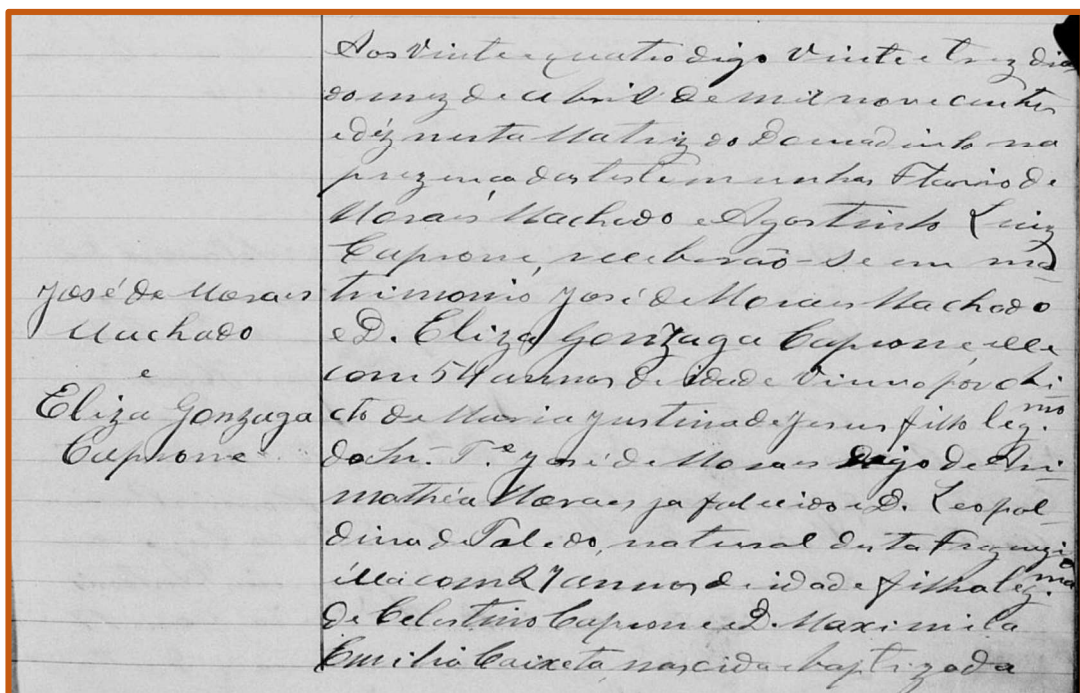 José de Moraes
Machado
e
Eliza Gonzaga
Caprone
Aos Vinte e quatro digo Vinte e trez dia
do mez de Abril de mil nove centos
e déz nesta Matriz do Douradinho na
prezença das testemunhas Flavio de
Moraes Machado e Agostinho Luiz
Caprone, receberão-se em ma
trimonio José de Moraes Machado
e D. Eliza Gonzaga Caprone elle
com 54 annos de idade Viuvo por obi
cto de Maria Justina de Jesus filho leg.mo
do Snr. T.e José de Moraes digo de Ari
mathéa Moraes ja falecido e D. Leopol-
dina de Toledo, natural desta Freguezia
élla com 27 annos de idade filha leg.ma
de Celestino Caprone e D. Maximila
Emilia Caixeta, nascida e baptizada